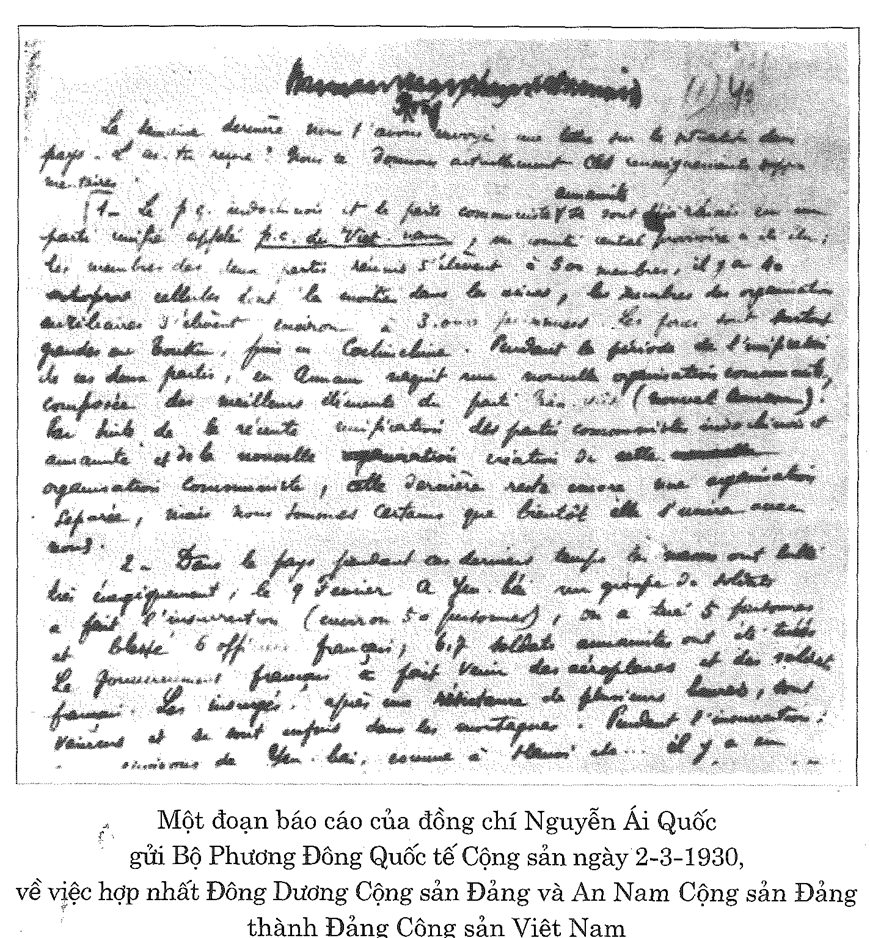 La semaine dernière nous t'avons envoyé une lettre sur la situation dans
pays. L'as-tu reçue? Nous te donnons actuellement des renseignements supplé
mentaires.
annamite
1- Le p.c. indochinois et le parti communiste se sont en un
parti unifié appelé p.c. du Viet-nam, un comité central provisoire a été élu;
les membres des deux partis réunis s'élèvent à 500 membres, il y a 40
cellules dont la moitié dans les usines, les membres des organisations
auxiliaires s'élèvent environ à 3.000 personnes. Les forces sont surtout
grandes au Tonkin, puis en Cochinchine. Pendant la période de l'unification
de ces deux partis, en Annam naquit une nouvelle organisation communiste,
composée des meilleurs éléments du parti (nouvel Annam).
Par suite de la récente unification des partis communistes indochinois et
annamite et de la nouvelle création de cette
organisation communiste, cette dernière reste encore une organisation
séparée, mais nous sommes certains que bientôt elle s'unira avec
nous.
2- Dans le pays pendant ces derniers temps les ont lutté
très énergiquement, le 9 Fevrier à Yen-bái un groupe de soldats
a fait l'insurrection (environ 50 personnes), on a tué 5 personnes
et blessé 6 officiers français, 6,7 soldats annamites ont été tués
Le Gouvernement français a fait venir des aéroplanes et des soldats
français. Les insurgés, après une résistance de plusieurs heures, sont
vaincus et se sont enfuis dans les montagnes. Pendant l'insurrection:
environs de Yen-bai, comme à Hanoi etc... il y a eu
Một đoạn báo cáo của đồng chí Nguyễn Ái Quốc
gửi Bộ Phương Đông Quốc tế Cộng sản ngày 2-3-1930,
về việc hợp nhất Đông Dương Cộng sản Đảng và An Nam Cộng sản Đảng
thành Đảng Cộng sản Việt Nam